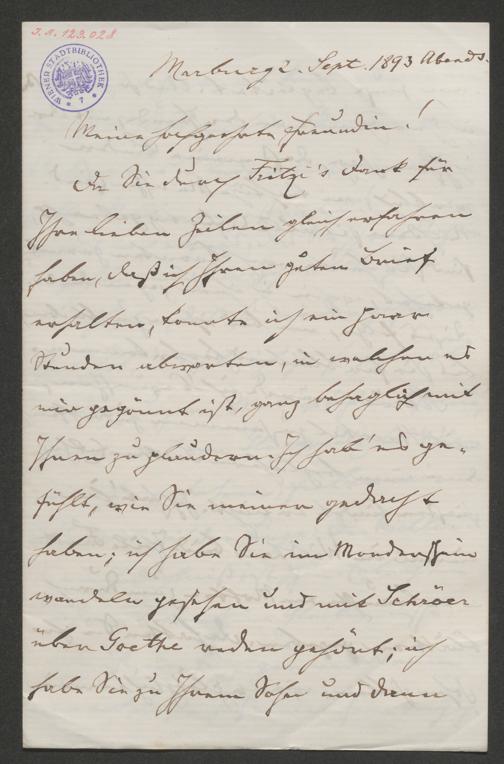 J.N. 123.028
WIENER STADTBIBLIOTHEK
* 7 *
Marburg 2. Sept. 1893 Abends.
Meine hochgeehrte Freundin!
Da Sie durch Fritzi's Dank für
Ihre lieben Zeilen gleich erfahren
haben, daß ich Ihren guten Brief
erhalten, konnte ich ein paar
Stunden abwarten, in welchen es
mir gegönnt ist, ganz behaglich mit
Ihnen zu plaudern. Ich hab' es ge-
fühlt, wie Sie meiner gedacht
haben; ich habe Sie im Mondenschein
wandeln gesehen und mit Schröer
über Goethe reden gehört; ich
habe Sie zu Ihrem Sohn und dann